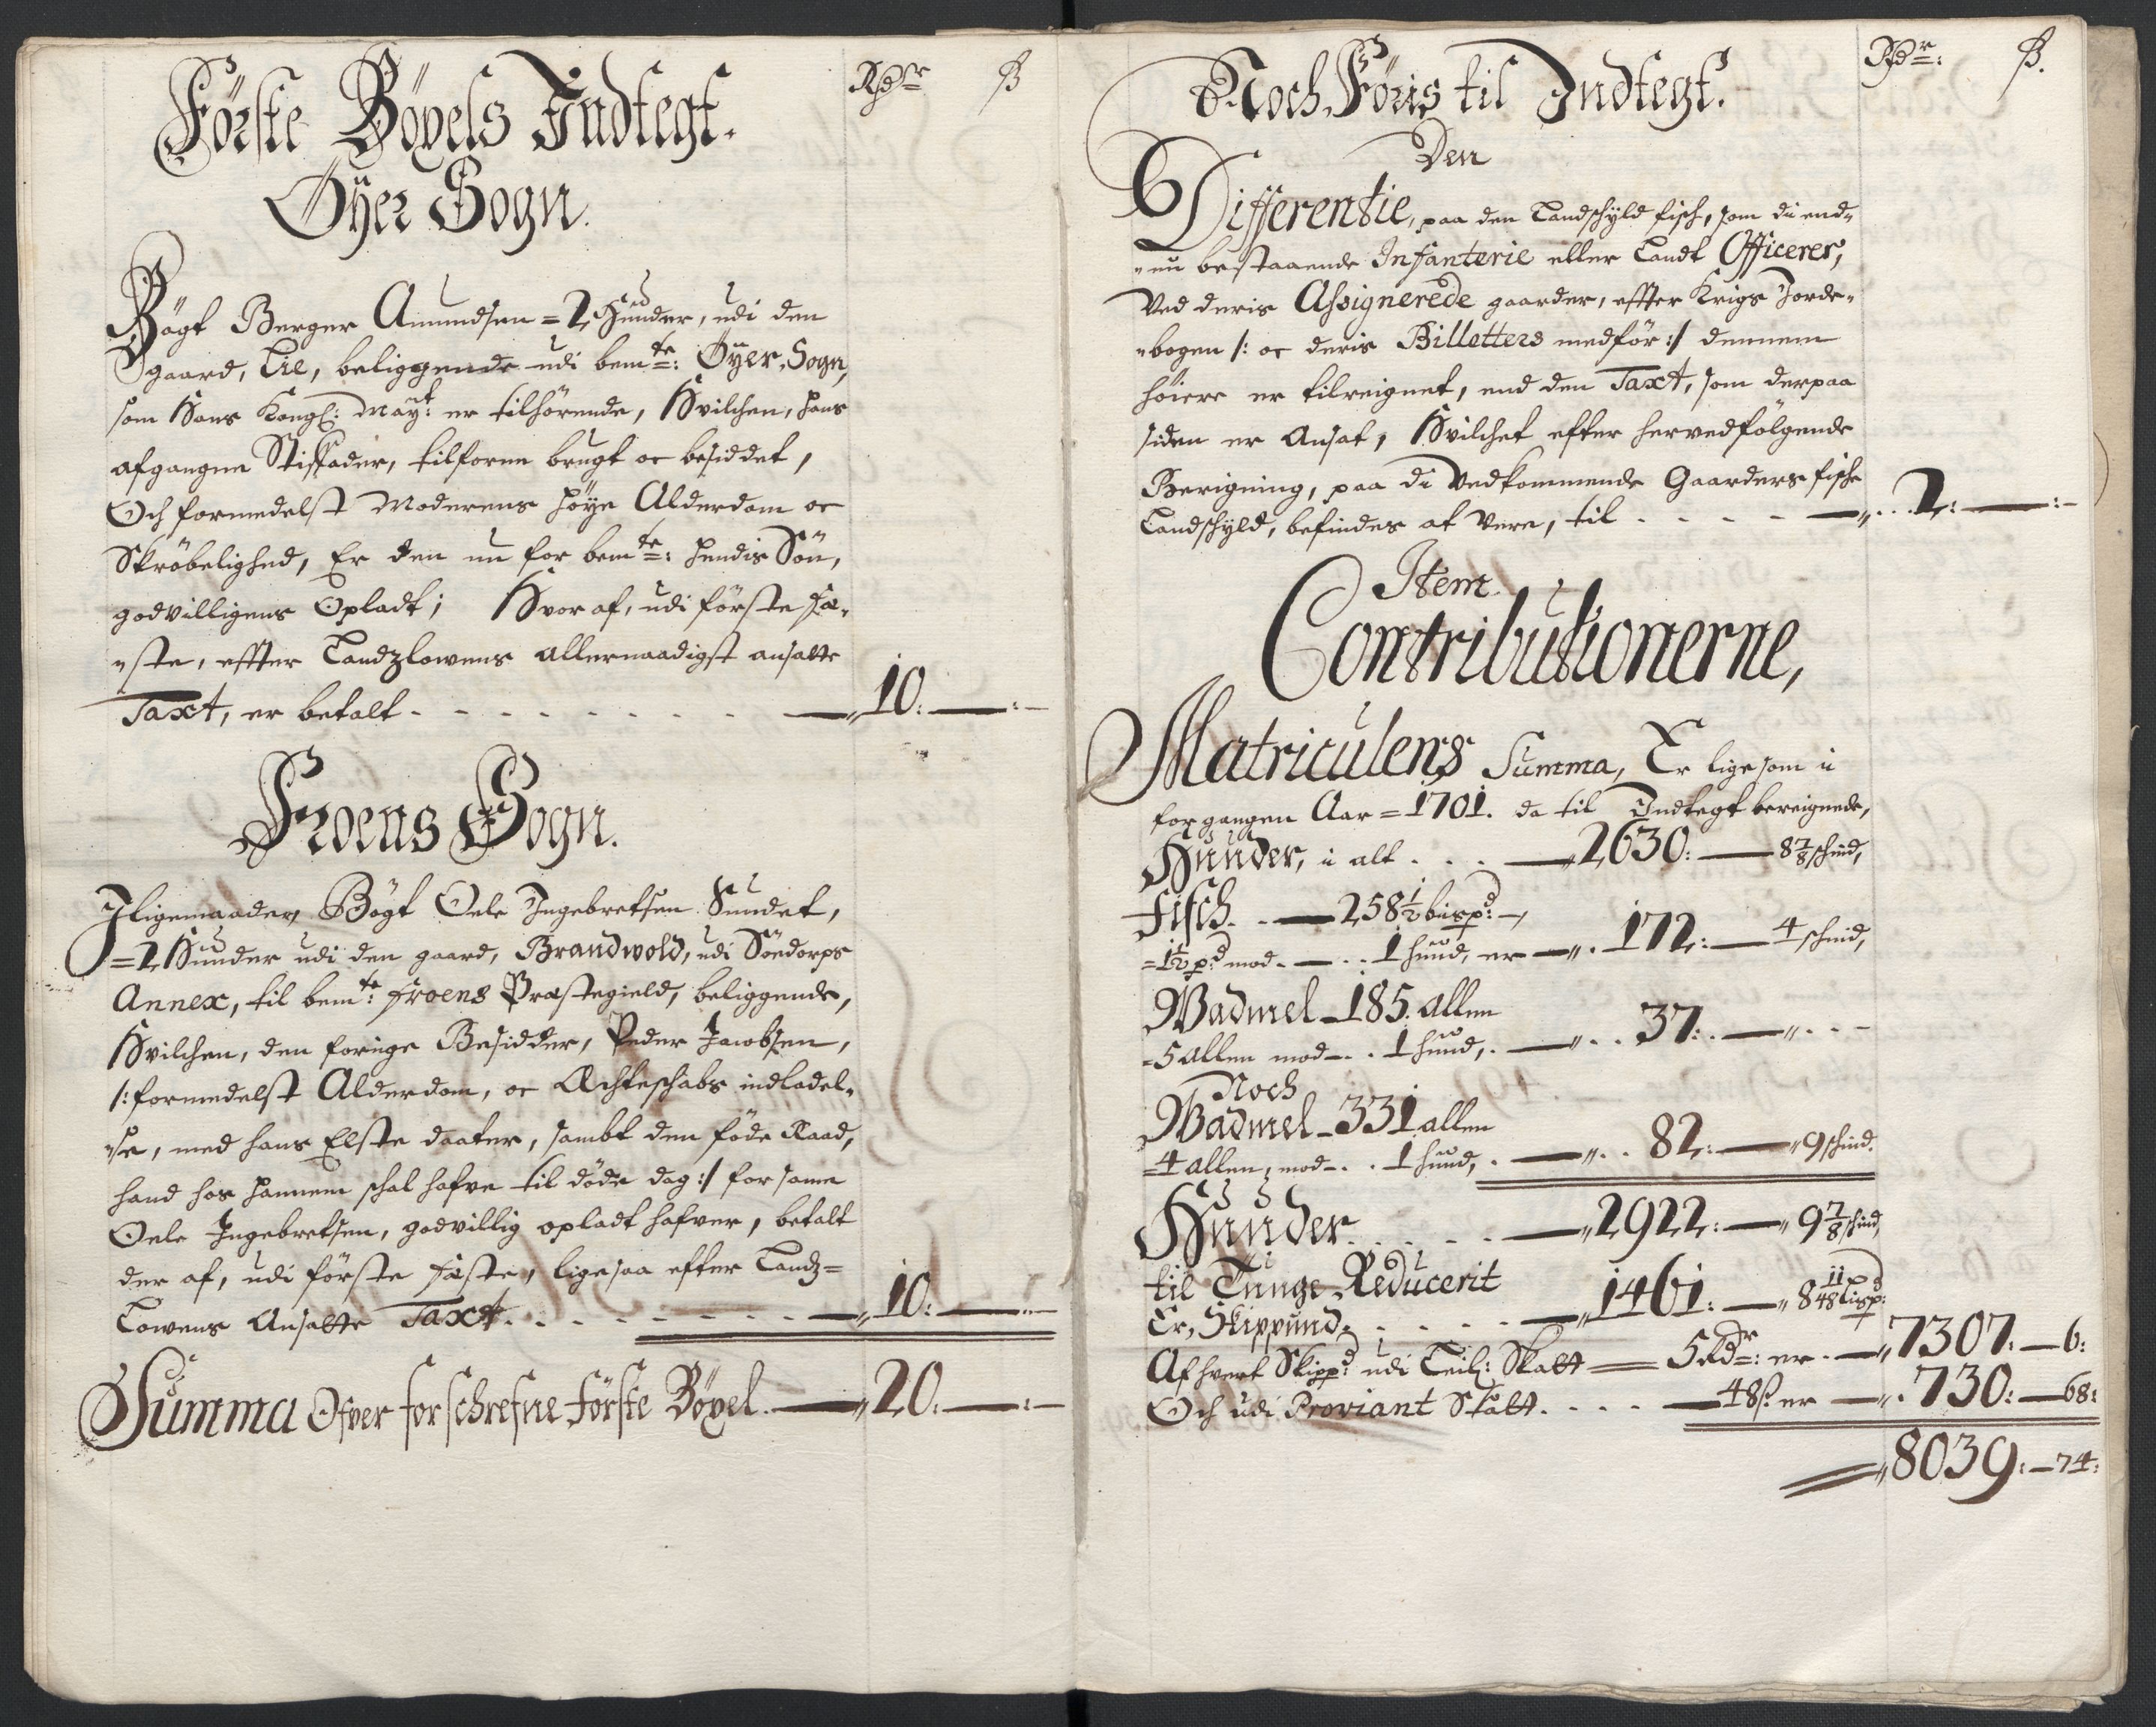 Rdr ß
Förste Böxels Indtegt.
Öyer Sogn.
Bögt Berger Amundsen = 2 Hunder, udi den
gaard, Lie, beliggende udi bemte: Öyer Sogn,
som Hans Kongl: Mayt: er tilhörende, Hvilchen, hans
afgangne Stiffader, tilforne brugt oc besiddet,
Och formedelst Moderens höye Alderdom oc
Skröbelighed, Er den nu for bemte: hendis Sön,
godvilligens Opladt; Hvor af, udi förste Fæ-
"ste, effter Landzlowens allernaadigst ansatte
Taxt, er betalt - - - - - - - - - — „ 10: — : —
Froens Sogn.
Iligemaader, Bögt Oele Ingebretsen Sundet,
= 2 Hunder udi den gaard, Brandwold, udi Södorps
Annex, til bemte: Froens Præstegield, beliggende,
Hvilchen, den forrige Besidder, Peder Jacobsen,
/: formedelst Alderdom, oc Echteschabs indladel-
"se, med hans Elste daater, sambt den föde Raad,
hand hos hannem schal hafve til döde dag :/ for same
Oele Ingebretsen, godvillig opladt hafver, betalt
der af, udi förste Fæste, ligesaa effter Landz=
Lowens Ansatte Taxt. - - - - - - — „ 10: — —
Summa Ofver forschrefne Förste Böxel. — „ 20: — : —
Rdr: ß.
Noch Föris til Indtegt.
Den
Differentie, paa den Landschyld fisch, som di end-
"nu bestaaende Infanterie eller Landt Officerer,
Ved deris Assignerede gaarder, effter Krigs Jorde-
"bogen /: oc deris Billetters medför :/ dennem
höiere er tilreignet, end den Taxt, som derpaa
siden er Ansat, Hvilchet efter hervedfölgende
Berigning, paa di Vedkommende Gaarders fische
Landschyld, befindes at Vere, til - - - - — „ . . 2: — : —
Item
Contributionerne,
Matriculens Summa, Er ligesom i
forgangen Aar = 1701. da til Indtegt bereignede,
Hunder, i alt . . . — „ 2630: — 8 7/8 schind,
Fisch. . — 258 1/2 bispd: —,
= 1 1/2 pd mod - — . . 1 hund, er — „ . 172: — 4 schind,
Wadmel - 185. allen
= 5 allen mod - . . 1 hund, . — „ . . 37: . — „ . . -
Noch
Wadmel - 331 allen
= 4 allen, mod - . . 1 hund, . — „ . . 82: — „ 9 schind.
Hunder. . . . . — „ 2922: — „ 9 7/8 schind,
til Tunge Reducerit
Er, Skippund. . . . . — „ 1461: — „ 8 11/48 Lispd:
Af hvert Skippd: udi Leil: Skatt — 5 Rdr: er - — „ 7307: — 6:
Och udi Proviant Skatt. - - - — 48 ß er — „ . 730: — 68:
„ 8039: — 74: